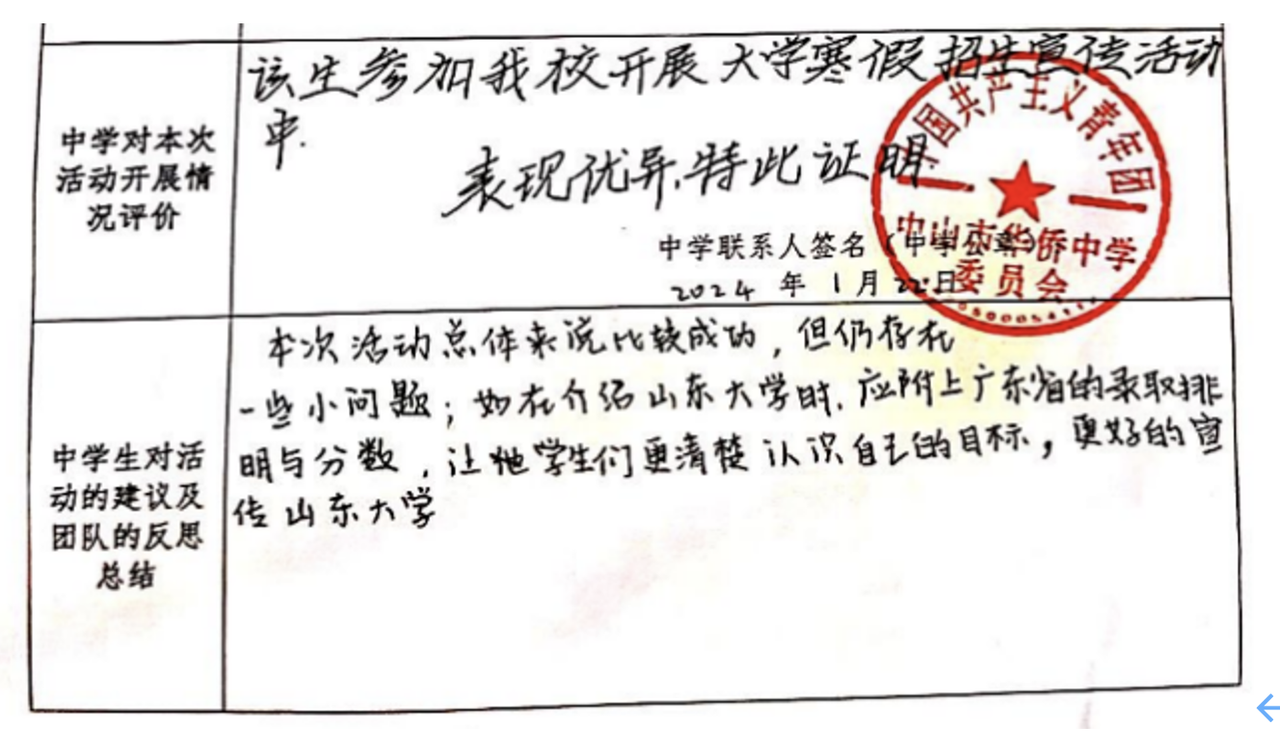 中学对本次
活动开展情
况评价
该生参加我校开展大学寒假招生宣传活动
中.
表现优异,特此证明.
中学联系人签名（中学公章）：
2024 年 1 月 22 日
中国共产主义青年团
中山市华侨中学
委员会
中学生对活
动的建议及
团队的反思
总结
本次活动总体来说比较成功，但仍存在
一些小问题；如在介绍山东大学时，应附上广东省的录取排
明与分数，让他学生们更清楚认识自己的目标，更好的宣
传山东大学